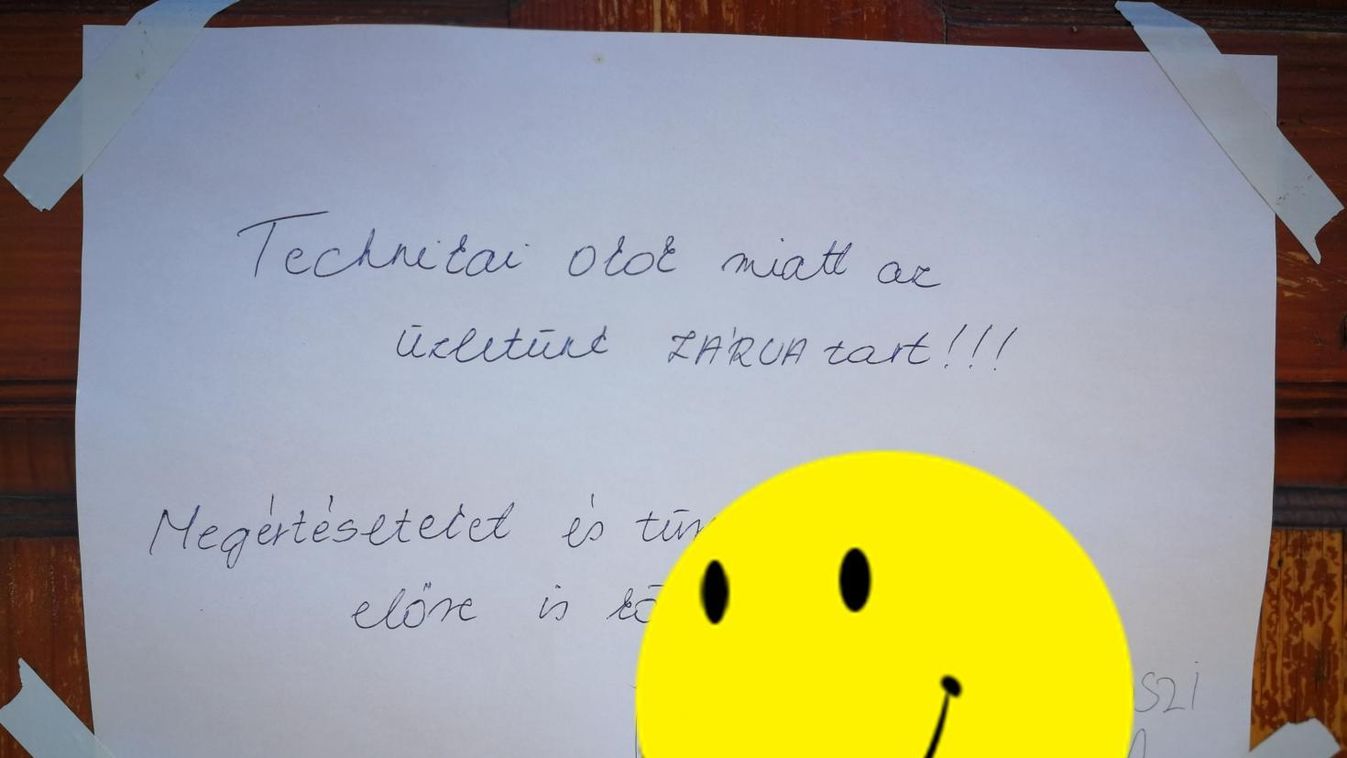 Technikai okok miatt az
üzletünk ZÁRVA tart!!!
Megértéseteket és
előre is